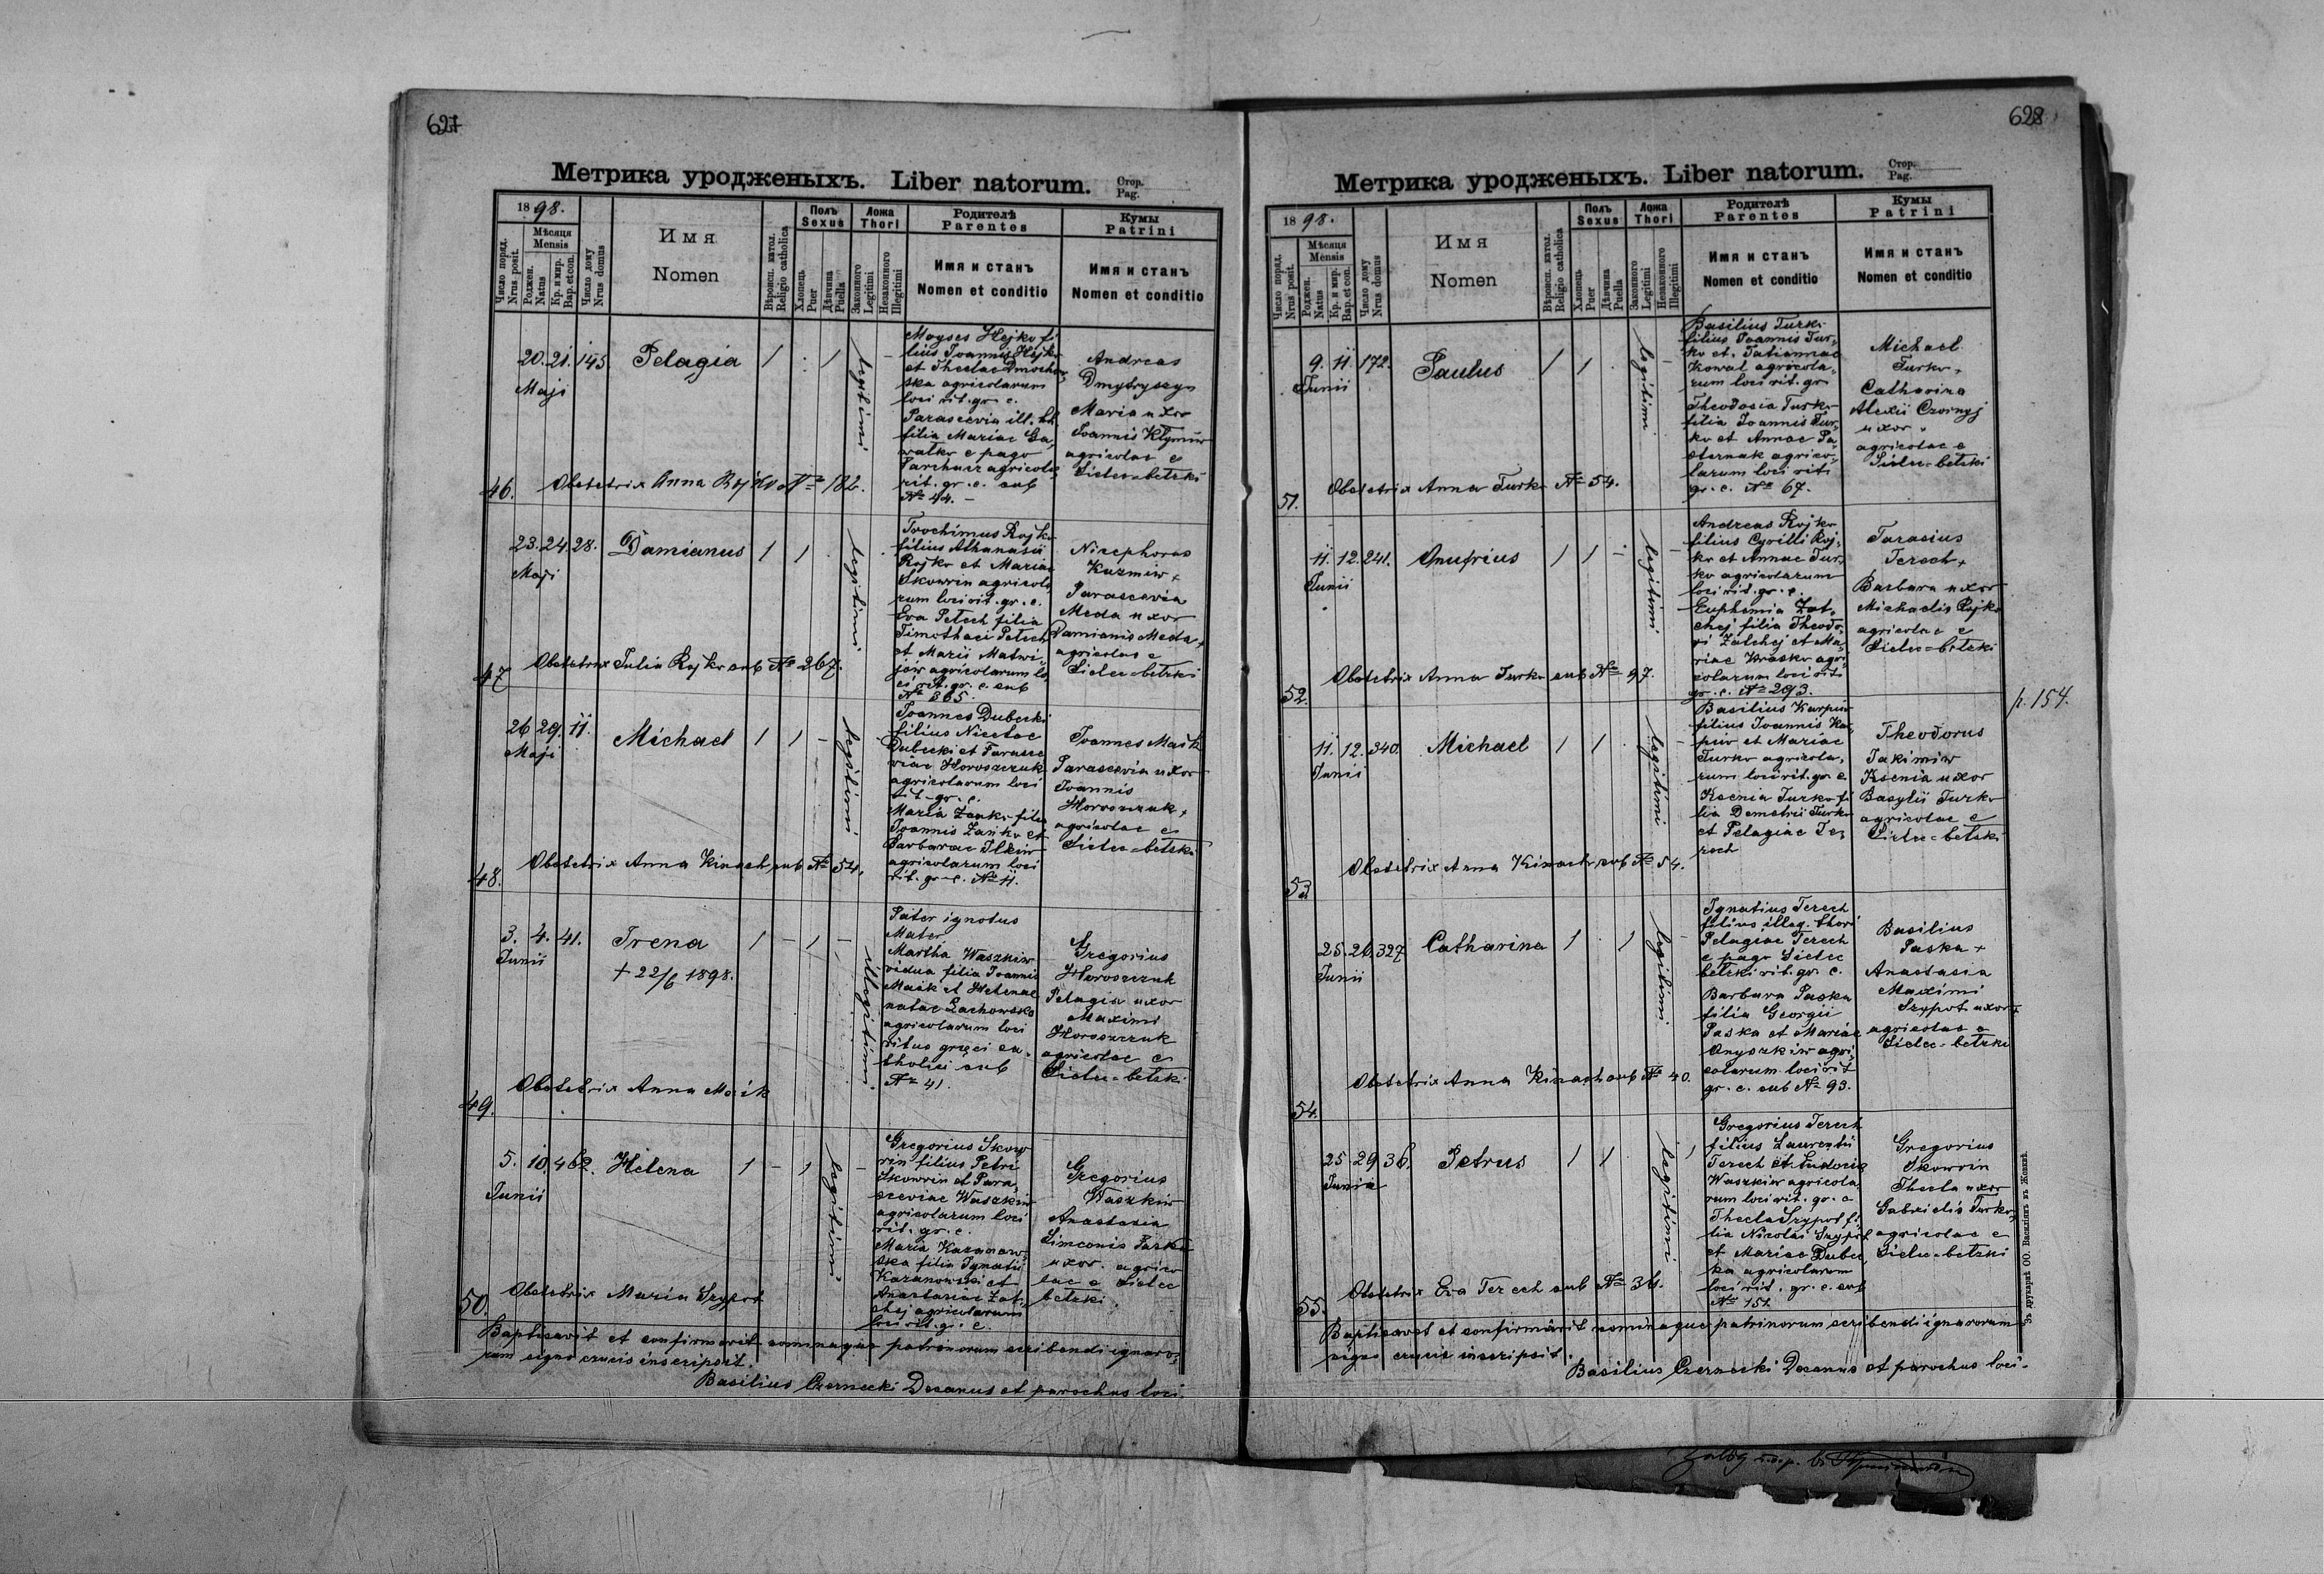 627
Метрика уродженыхъ. Liber natorum. Стор. Pag.
18 98.
Число поряд. Nrus posit.
Мѣсяця Mensis
Роджен. Natus
Кр. и мир. Bap. et con.
Число дому Nrus domus
Имя Nomen
Вѣроисп. катол. Religio catholica
Полъ Sexus
Хлопець Puer
Дѣвчина Puella
Ложа Thori
Законного Legitimi
Незаконного Illegitimi
Родителѣ Parentes
Имя и станъ Nomen et conditio
Кумы Patrini
Имя и станъ Nomen et conditio
46.
20. 21. 145 Pelagia 1 1 legitimi
Maji
Moyses Hejko fi
lius Joannis Hejko
et Theclae Dmochow
ska agricolarum
loci rit. gr. c.
Parascevia ill. th.
filia Mariae Ga
watko e pago
Parchacz agricolae
rit. gr. c. sub
№ 44. –
Andreas
Dmytryszyn
Maria uxor
Joannis Klymiw
agricolae e
Sielec-bełzki
Obstetrix Anna Rojko № 182.
47
23. 24. 28. Damianus 1 1 legitimi
Maji
Trochimus Rojko
filius Athanasii
Rojko et Mariae
Skowrin agricola
rum loci rit. gr. c.
Eva Petech filia
Timothaei Petech
et Marii Matwi
jów agricolarum lo
ci rit. gr. c. sub
№ 365.
Nicephorus
Kuzmiw +
Parascevia
Meda uxor
Damianis Meda +
agricolae e
Sielec-bełzki
Obstetrix Julia Rojko sub № 267.
48.
26 29. 11. Michael 1 1 legitimi
Maji
Joannes Dubecki
filius Nicetae
Dubecki et Parasce
viae Horoszczuk
agricolarum loci
rit. gr. c.
Maria Zańko filia
Joannis Zańko et
Barbarae Ilkiw
agricolarum loci
rit. gr. c. № 11.
Joannes Maik
Parascevia uxor
Joannis
Horoszczuk +
agricolae e
Sielec-bełzki
Obstetrix Anna Kinach sub № 54.
49.
3. 4. 41. Irena 1 – 1 – illegitimi
Junii
+ 22/6 1898.
Pater ignotus
Mater
Martha Waszkiw
vidua filia Joannis
Maik et Helenae
natae Lachowska
agricolarum loci
ritus graeci ca
tholici sub
№ 41.
Gregorius
Horoszczuk
Pelagia uxor
Maximi
Horoszczuk
agricolae e
Sielec-bełzki
Obstetrix Anna Maik
50.
5. 10. 462. Helena 1 – 1 legitimi
Junii
Gregorius Skow
rin filius Petri
Skowrin et Para
sceviae Waszkiw
agricolarum loci
rit. gr. c.
Maria Kazanow
ska filia Ignatii
Kazanowski et
Anastasiae Zat
chej agricolarum
loci rit. gr. c.
Gregorius
Waszkiw
Anastasia
Simeonis Paska
uxor. agrico
lae e Sielec
bełzki.
Obstetrix Maria Szypot
Baptisavit et confirmavit nominaque patrinorum scribendi ignaro
rum signo crucis inscripsit.
Basilius Czernecki Decanus et parochus loci.
628
Метрика уродженыхъ. Liber natorum. Стор. Pag.
18 98.
Число поряд. Nrus posit.
Мѣсяця Mensis
Роджен. Natus
Кр. и мир. Bap. et con.
Число дому Nrus domus
Имя Nomen
Вѣроисп. катол. Religio catholica
Полъ Sexus
Хлопець Puer
Дѣвчина Puella
Ложа Thori
Законного Legitimi
Незаконного Illegitimi
Родителѣ Parentes
Имя и станъ Nomen et conditio
Кумы Patrini
Имя и станъ Nomen et conditio
51.
9. 11 172. Paulus 1 1 legitimi
Junii
Basilius Turko
filius Joannis Tur
ko et Tatiannae
Kowal agricola
rum loci rit. gr.
Theodosia Turko
filia Joannis Tur
ko et Annae Pa
sternak agrico
larum loci rit.
gr. c. № 67.
Michael
Turko +
Catharina
Alexii Czornyj
uxor
agricolae e
Sielec-bełzki
Obstetrix Anna Turko № 54.
52.
11. 12. 241. Onufrius 1 1 – legitimi
Junii
Andreas Rojko
filius Cyrilli Roj
ko et Annae Tur
ko agricolarum
loci rit. gr. c.
Euphemia Zat
chej filia Theodo
ri Zatchej et Ma
riae Krasko agri
colarum loci rit.
gr. c. № 293.
Tarasius
Terech +
Barbara uxor
Michaelis Rojko
agricolae e
Sielec-bełzki
Obstetrix Anna Turko sub № 97.
p. 154.
53.
11. 12. 340. Michael 1 1 legitimi
Junii
Basilius Karpiw
filius Joannis Ka
piw et Mariae
Turko agricola
rum loci rit. gr. c.
Ksenia Turko fi
lia Demetrii Turko
et Pelagiae Te
rech
Theodorus
Jakimiw
Ksenia uxor
Basylii Turko
agricolae e
Sielec-bełzki
Obstetrix Anna Kinach sub № 54.
54.
25. 26. 327 Catharina 1 1 legitimi
Junii
Ignatius Terech
filius illeg. thori
Pelagiae Terech
e pago Sielec
bełzki rit. gr. c.
Barbara Paska
filia Georgii
Paska et Mariae
Onyszkiw agri
colarum loci rit
gr. c. sub № 93.
Basilius
Paska +
Anastasia
Maximi
Szypot uxor +
agricolae e
Sielec-bełzki
Obstetrix Anna Kinach sub № 40.
55.
25 29 36. Petrus 1 1 legitimi
Junii
Gregorius Terech
filius Laurentii
Terech et Eudociae
Waszkiw agricola
rum loci rit. gr. c
Thecla Szypot fi
lia Nicolai Szypot
et Mariae Dubec
ka agricolarum
loci rit. gr. c. sub
№ 151.
Gregorius
Skowrin
Thecla uxor
Gabrielis Turko
agricolae e
Sielec-bełzki
Obstetrix Eva Terech sub № 36.
Baptisavit et confirmavit nominaque patrinorum scribendi ignarorum
signo crucis inscripsit.
Basilius Czernecki Decanus et parochus loci.
Зъ друкарнѣ ОО. Василіянъ въ Жовквѣ.